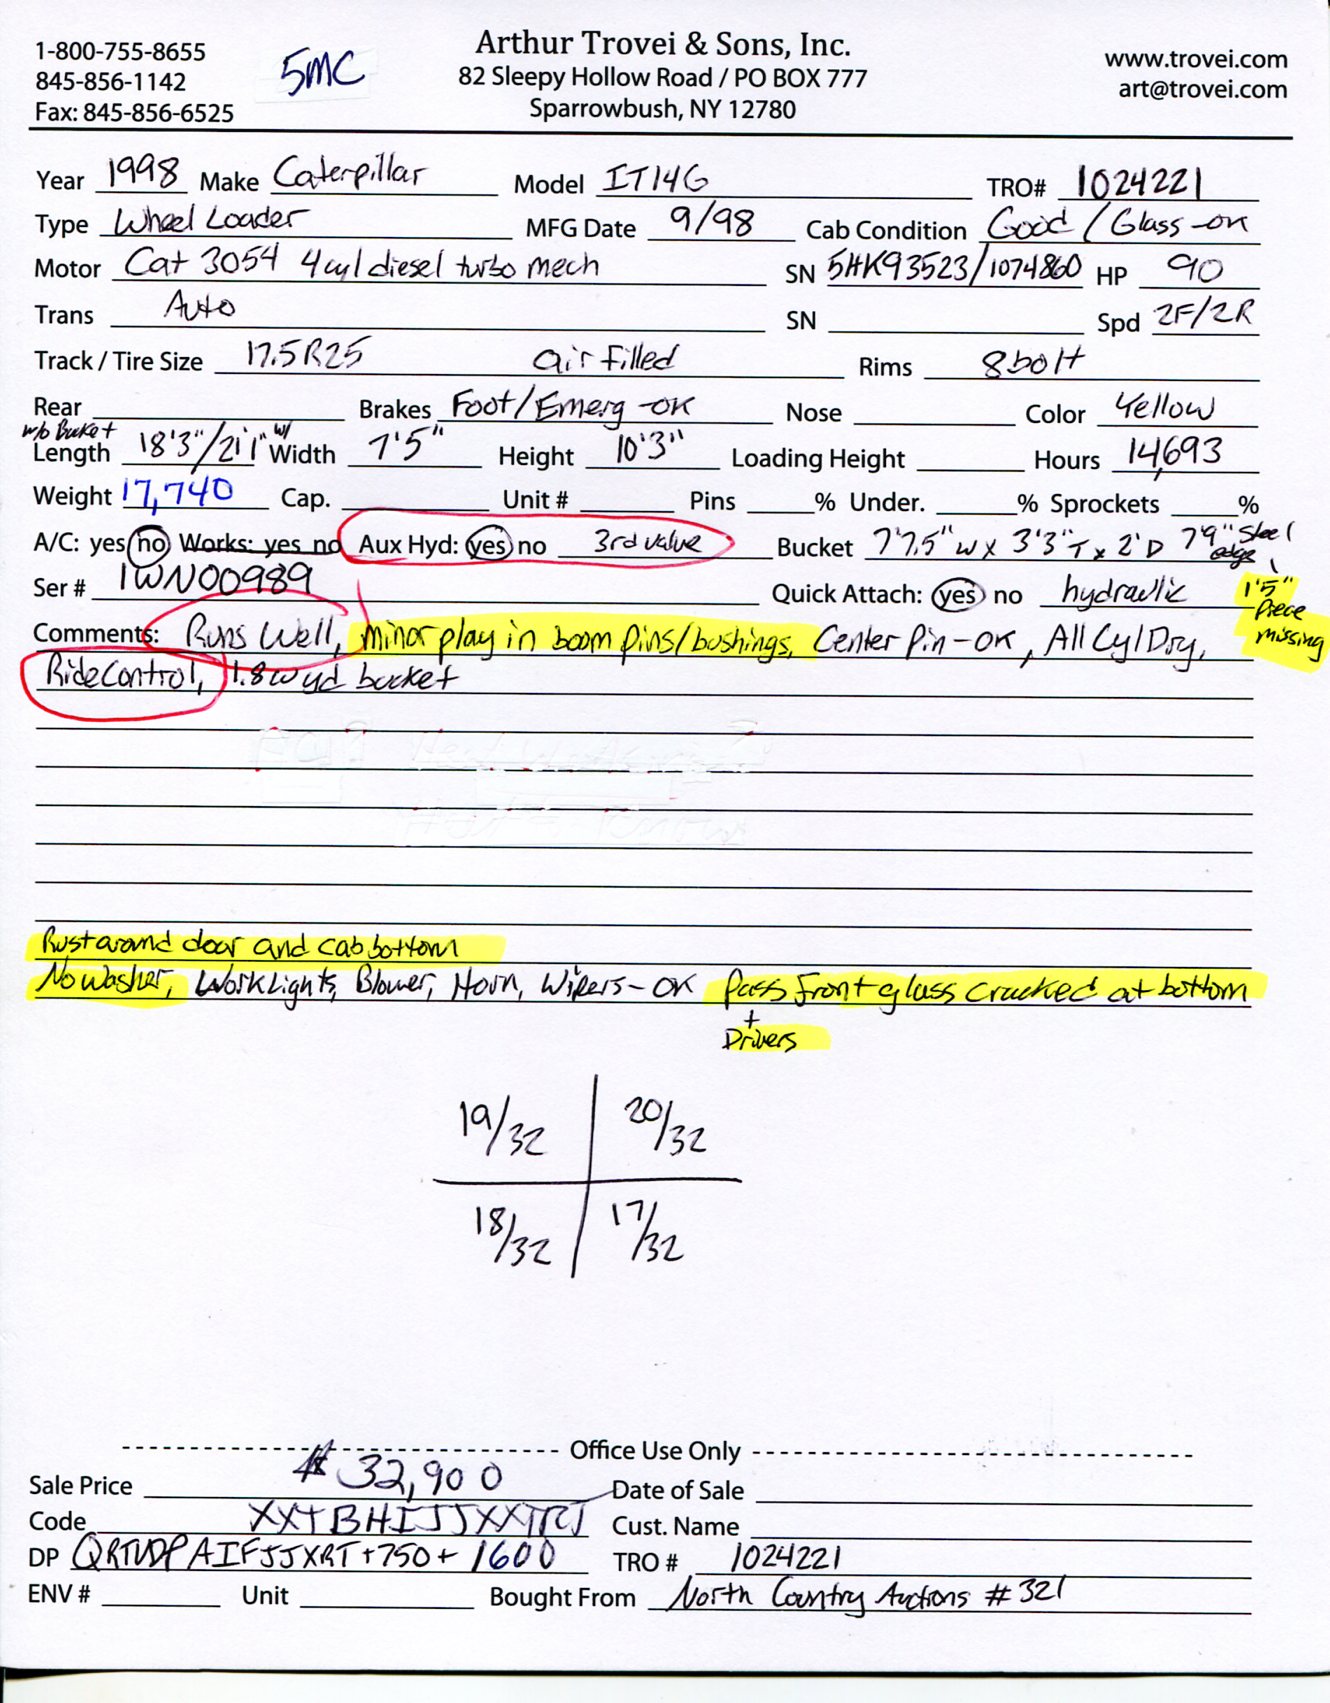 1-800-755-8655
845-856-1142
Fax: 845-856-6525
5MC
Arthur Trovei & Sons, Inc.
82 Sleepy Hollow Road / PO BOX 777
Sparrowbush, NY 12780
www.trovei.com
art@trovei.com
Year 1998 Make Caterpillar Model IT14G TRO# 1024221
Type Wheel Loader MFG Date 9/98 Cab Condition Good / Glass-ok
Motor Cat 3054 4cyl diesel turbo mech SN 5HK93523/1074860 HP 90
Trans Auto SN Spd 2F/2R
Track / Tire Size 17.5R25 air filled Rims 8bolt
Rear Brakes Foot/Emerg-ok Nose Color Yellow
w/o Bucket
Length 18'3"/21'1" w/ Width 7'5" Height 10'3" Loading Height Hours 14,693
Weight 17,740 Cap. Unit # Pins % Under. % Sprockets %
A/C: yes no Works: yes no Aux Hyd: yes no 3rd valve Bucket 7'7.5" W x 3'3" T x 2' D 7'9" Steel edge
Ser # 1WN00989 Quick Attach: yes no hydraulic 1'5" Piece missing
Comments: Runs Well, minor play in boom pins/bushings, Center Pin-OK, All Cyl Dry,
Ride Control, 1.8 yd bucket
Rust around door and cab bottom
No Washer, Work Lights, Blower, Horn, Wipers-OK Pass Front glass cracked at bottom
+
Drivers
19/32 20/32
18/32 17/32
Office Use Only
Sale Price $32,900 Date of Sale
Code Cust. Name
DP +750+1600 TRO # 1024221
ENV # Unit Bought From North Country Auctions #321